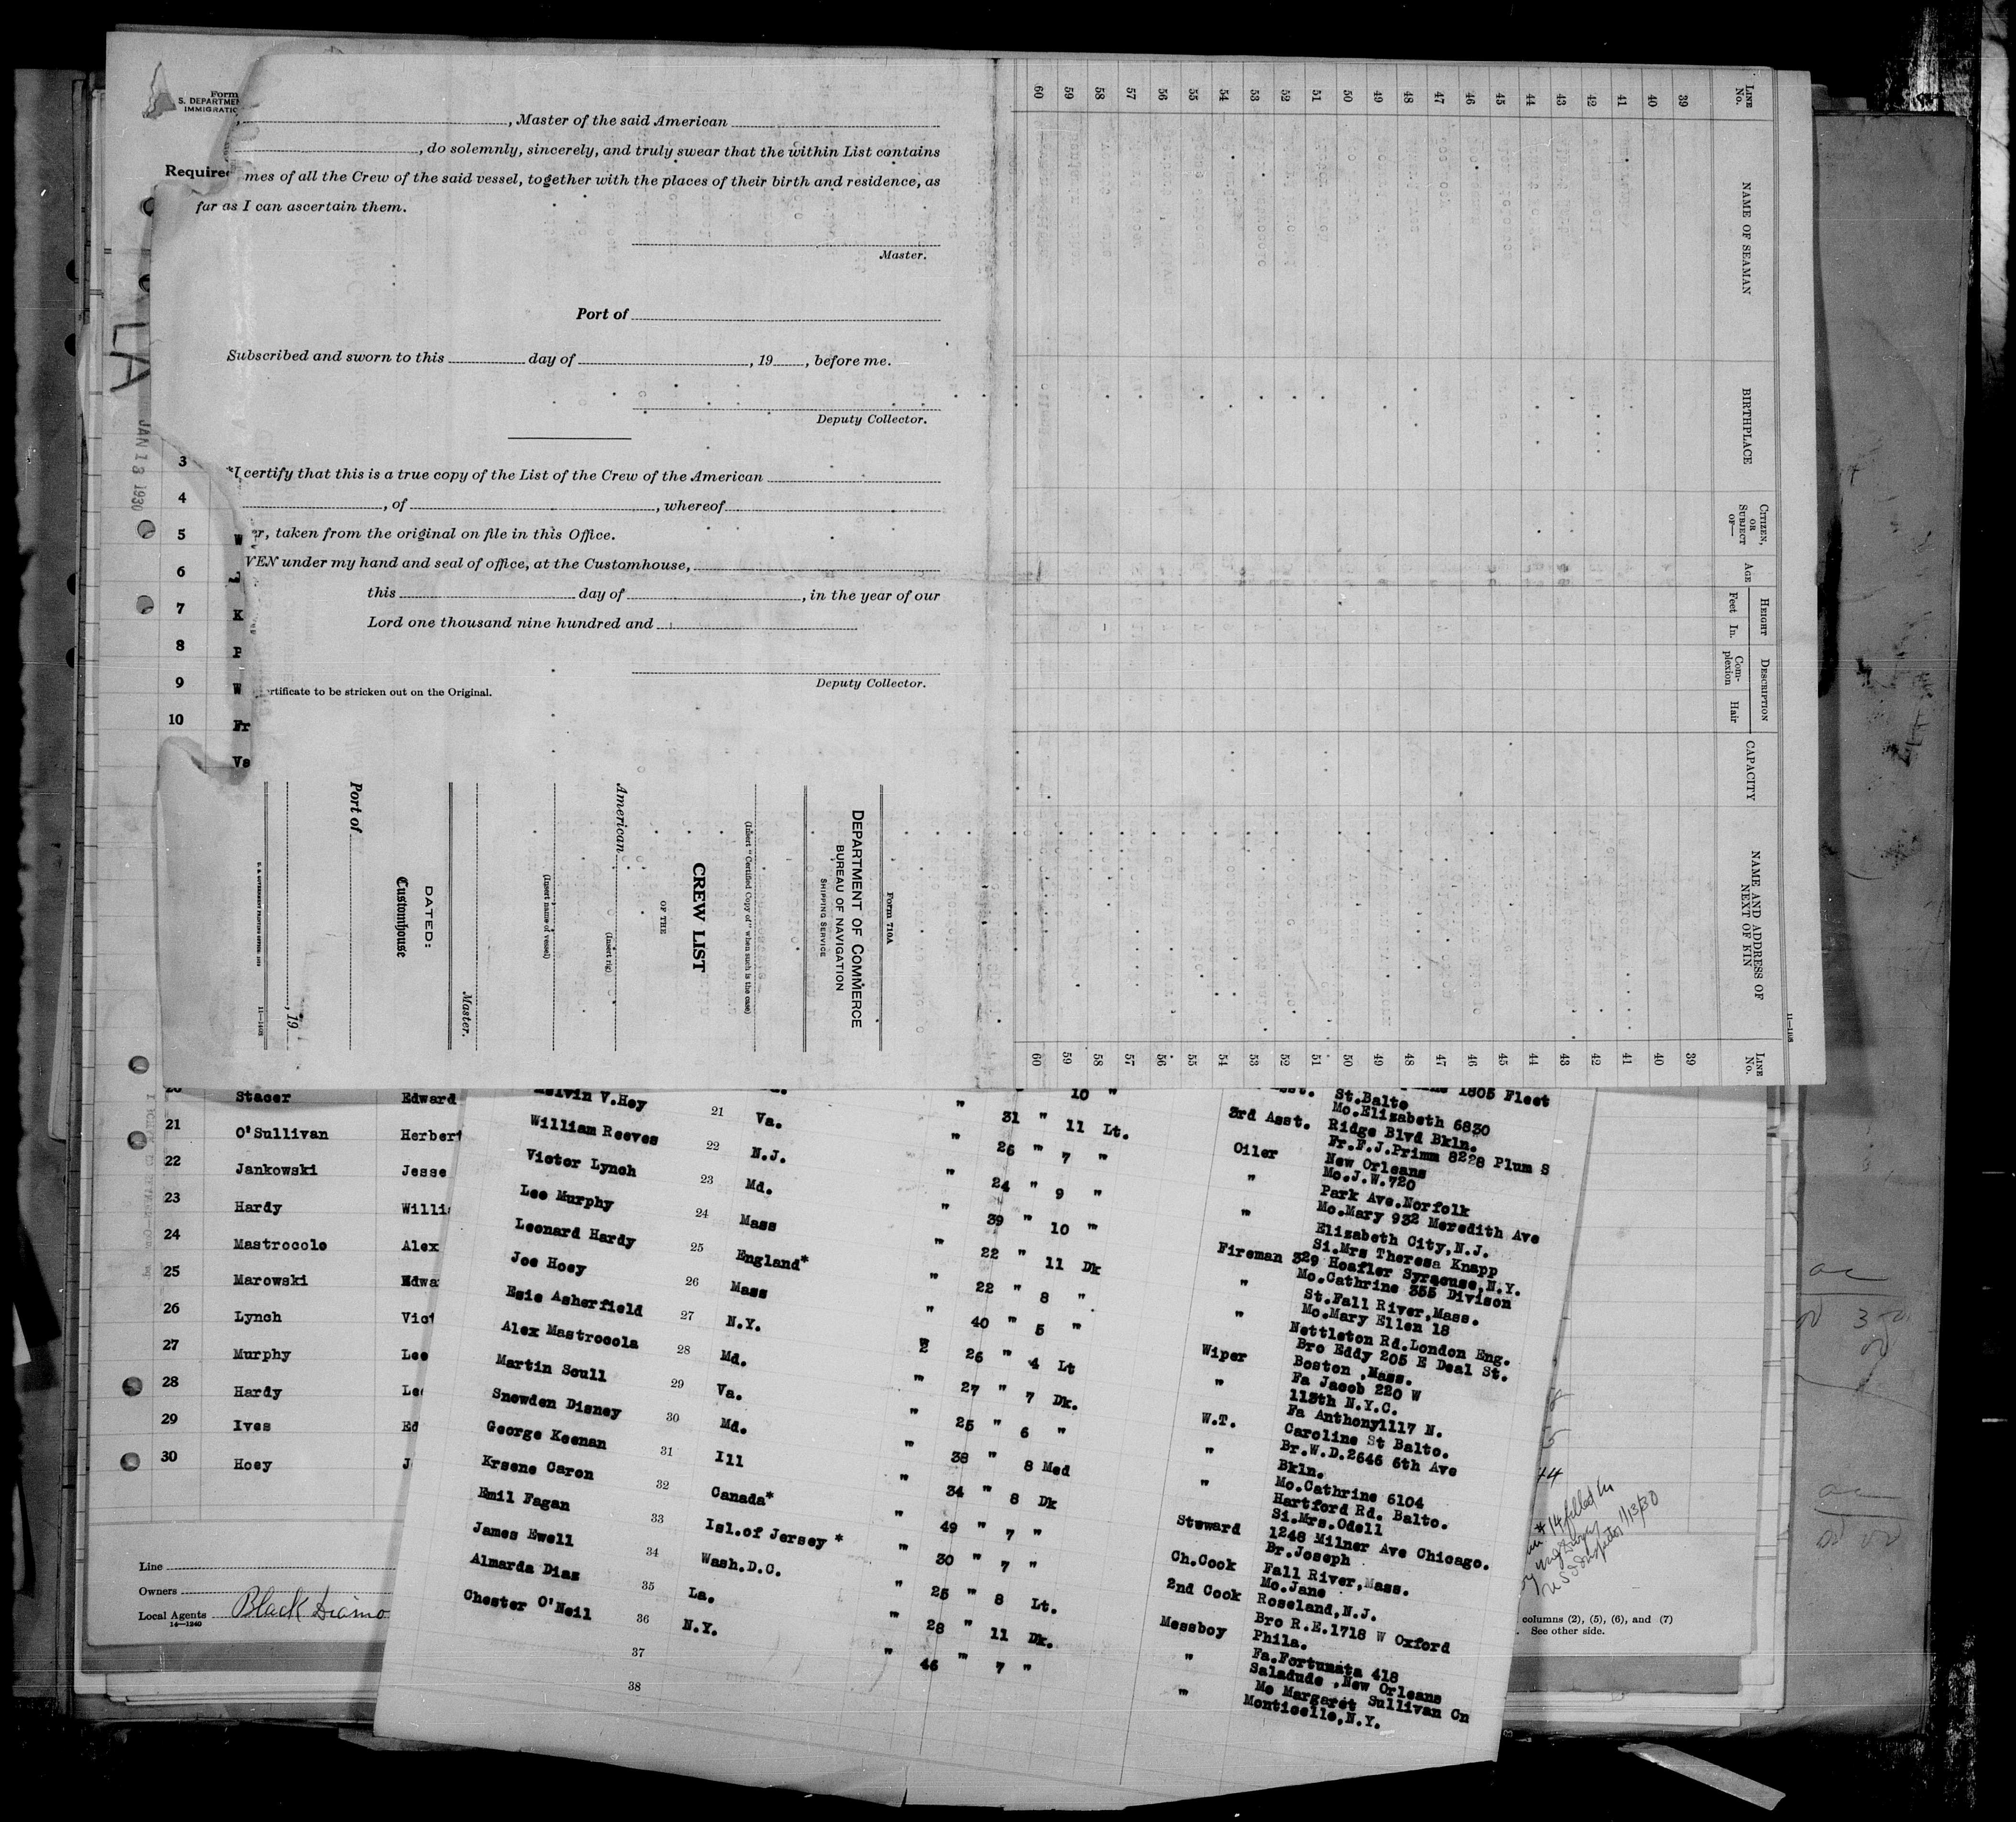 Form
S. DEPARTMEN
IMMIGRATIO
, Master of the said American
, do solemnly, sincerely, and truly swear that the within List contains
Required
mes of all the Crew of the said vessel, together with the places of their birth and residence, as
far as I can ascertain them.
Master.
Port of
Subscribed and sworn to this day of , 19 , before me.
Deputy Collector.
LA
JAN 13 1930
*I certify that this is a true copy of the List of the Crew of the American
, of , whereof
er, taken from the original on file in this Office.
VEN under my hand and seal of office, at the Customhouse,
this day of , in the year of our
Lord one thousand nine hundred and
Deputy Collector.
ertificate to be stricken out on the Original.
3
4
5 W
6 J
7 K
8 P
9 W
10 Fr
Ve
Form 710A
DEPARTMENT OF COMMERCE
BUREAU OF NAVIGATION
SHIPPING SERVICE
(Insert "Certified Copy of" when such is the case)
CREW LIST
OF THE
American
(Insert rig)
(Insert name of vessel)
Master.
DATED:
Customhouse
Port of
, 19
U. S. GOVERNMENT PRINTING OFFICE: 11—1408
LINE No.
NAME OF SEAMAN
BIRTHPLACE
CITIZEN, OR SUBJECT OF—
AGE
HEIGHT
Feet In.
DESCRIPTION
Complexion Hair
CAPACITY
NAME AND ADDRESS OF NEXT OF KIN
LINE No.
39
40
41
42
43
44
45
46
47
48
49
50
51
52
53
54
55
56
57
58
59
60
20 Stacer Edward
21 O'Sullivan Herbert
22 Jankowski Jesse
23 Hardy Willi
24 Mastrocolo Alex
25 Marowski Edwa
26 Lynch Vict
27 Murphy Lee
28 Hardy Le
29 Ives Ed
30 Hoey J
Line
Owners
Local Agents Black Diamo
14—1240
Melvin V.Hey 21 Va. " 31 " 11 Lt. 3rd Asst.
William Reeves 22 N.J. " 25 " 7 " Oiler
Victor Lynch 23 Md. " 24 " 9 " "
Lee Murphy 24 Mass " 39 " 10 " "
Leonard Hardy 25 England* " 22 " 11 Dk Fireman
Joe Hoey 26 Mass " 22 " 8 " "
Esie Asherfield 27 N.Y. " 40 " 5 " "
Alex Mastrocola 28 Md. 26 " 4 Lt Wiper
Martin Scull 29 Va. " 27 " 7 Dk. "
Snowden Disney 30 Md. " 25 " 6 " W.T.
George Keenan 31 Ill " 38 " 8 Med "
Krsene Caron 32 Canada* " 34 " 8 Dk "
Emil Fagan 33 Isl.of Jersey * " 49 " 7 " Steward
James Ewell 34 Wash.D.C. " 30 " 7 " Ch.Cook
Almarda Diaz 35 La. " 25 " 8 Lt. 2nd Cook
Chester O'Neil 36 N.Y. " 28 " 11 Dk. Messboy
37 " 46 " 7 " "
38 "
1805 Fleet
St.Balto
Mo.Elizabeth 6830
Ridge Blvd Bkln.
Fr.F.J.Primm 8228 Plum S
New Orleans
Mo.J.W.720
Park Ave.Norfolk
Mo.Mary 932 Meredith Ave
Elizabeth City,N.J.
Si.Mrs Theresa Knapp
329 Hoafler Syracuse,N.Y.
Mo.Cathrine 355 Divison
St.Fall River,Mass.
Mo.Mary Ellen 18
Nettleton Rd.London Eng.
Bro Eddy 205 E Deal St.
Boston ,Mass.
Fa Jacob 220 W
115th N.Y.C.
Fa Anthony1117 N.
Caroline St Balto.
Br.W.D.2646 6th Ave
Bkln.
Mo.Cathrine 6104
Hartford Rd. Balto.
Si.Mrs.Odell
1248 Milner Ave Chicago.
Br.Joseph
Fall River,Mass.
Mo.Jane
Roseland,N.J.
Bro R.E.1718 W Oxford
Phila.
Fa.Fortunata 418
Saladude ,New Orleans
Mo Margaret Sullivan Cn
Monticello,N.Y.
44
* 14 filled in
US Inspector 1/13/30
columns (2), (5), (6), and (7)
. See other side.